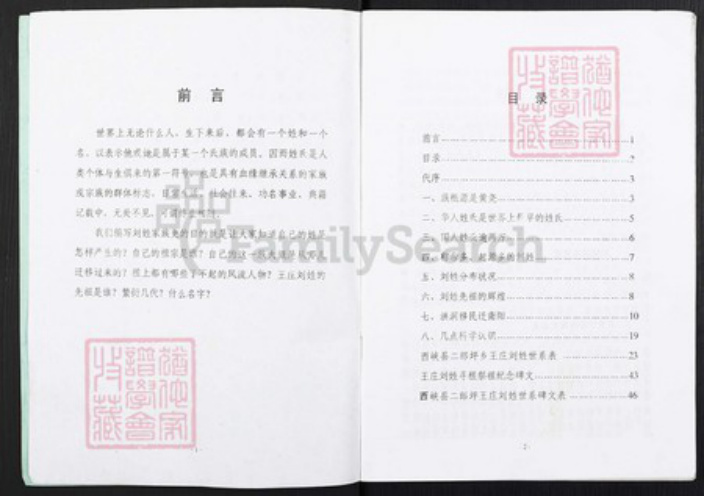 前 言
世界上无论什么人，生下来后，都会有一个姓和一个
名，以表示他或她是属于某一个氏族的成员。因而姓氏是人
类个体与生俱来的第一符号，也是具有血缘继承关系的家族
或家族的群体标志。日常生活、社会往来、功名事业、典籍
记载中，无处不见，
我们编写刘姓家族史的目的就是让大家知道自己的姓是
怎样产生的？自己的祖宗是谁？自己的这一族
迁移过来的？祖上都有哪些了不起的风流人物？王庄刘姓的
先祖是谁？繁衍几代？什么名字？
·1·
犹他家
谱学会
特藏
目 录
前言 1
目录 2
代序 3
一、族根源是黄尧 3
二、华人姓氏是世界上最早的姓氏 5
三、国人姓氏 6
四、 7
五、刘姓分布状况 8
六、刘姓先祖的辉煌 8
七、洪洞移民迁南阳 10
八、几点科学认识 19
西峡县二郎坪乡王庄刘姓世系表 23
王庄刘姓寻根祭祖纪念碑文 43
西峡县二郎坪王庄刘姓世系碑文表 46
·2·
犹他家
谱学会
特藏
FamilySearch